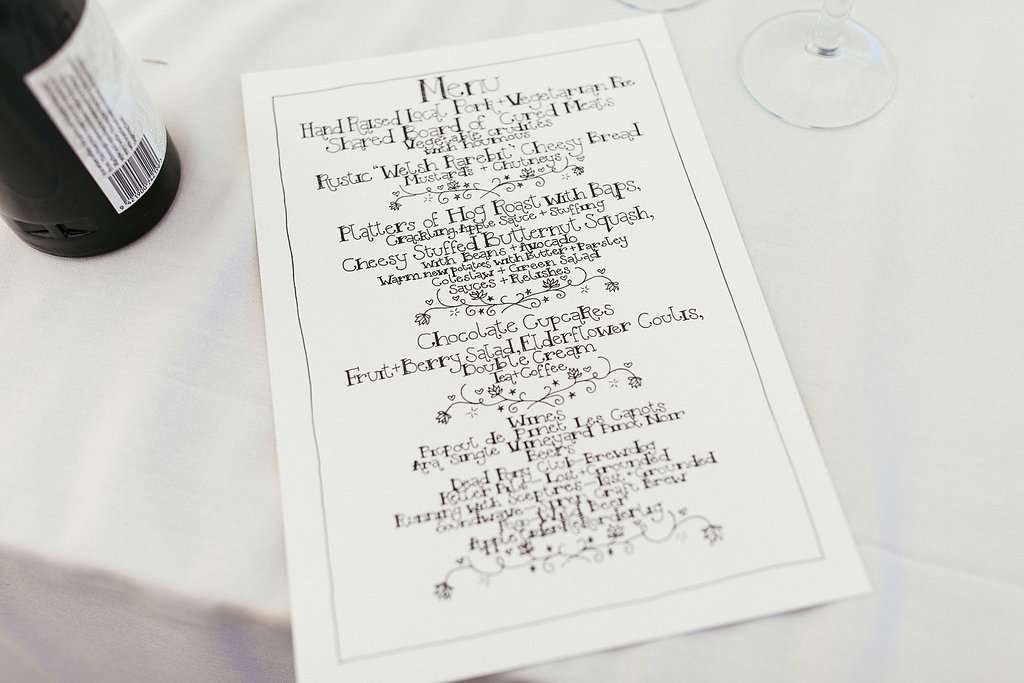 Menu
Hand Raised Local Pork + Vegetarian Pie
Shared Board of Cured Meats
Vegetable crudites
with houmous
Rustic "Welsh Rarebit" Cheesy Bread
Mustards + Chutneys
Platters of Hog Roast With Baps,
Crackling, Apple Sauce + Stuffing
Cheesy Stuffed Butternut Squash,
with Beans + Avocado
Warm new potatoes with Butter + Parsley
Coleslaw + Green Salad
Sauces + Relishes
Chocolate Cupcakes
Fruit + Berry Salad, Elderflower Coulis,
Double Cream
Tea + Coffee
Wines
Picpoul de Pinet Les Canots
Ara Single Vineyard Pinot Noir
Beers
Dead Pony Club - Brewdog
Keller Pils - Lost + Grounded
Running With Sceptres - Lost + Grounded
Soundwave - Craft Brew
Beer
Apple